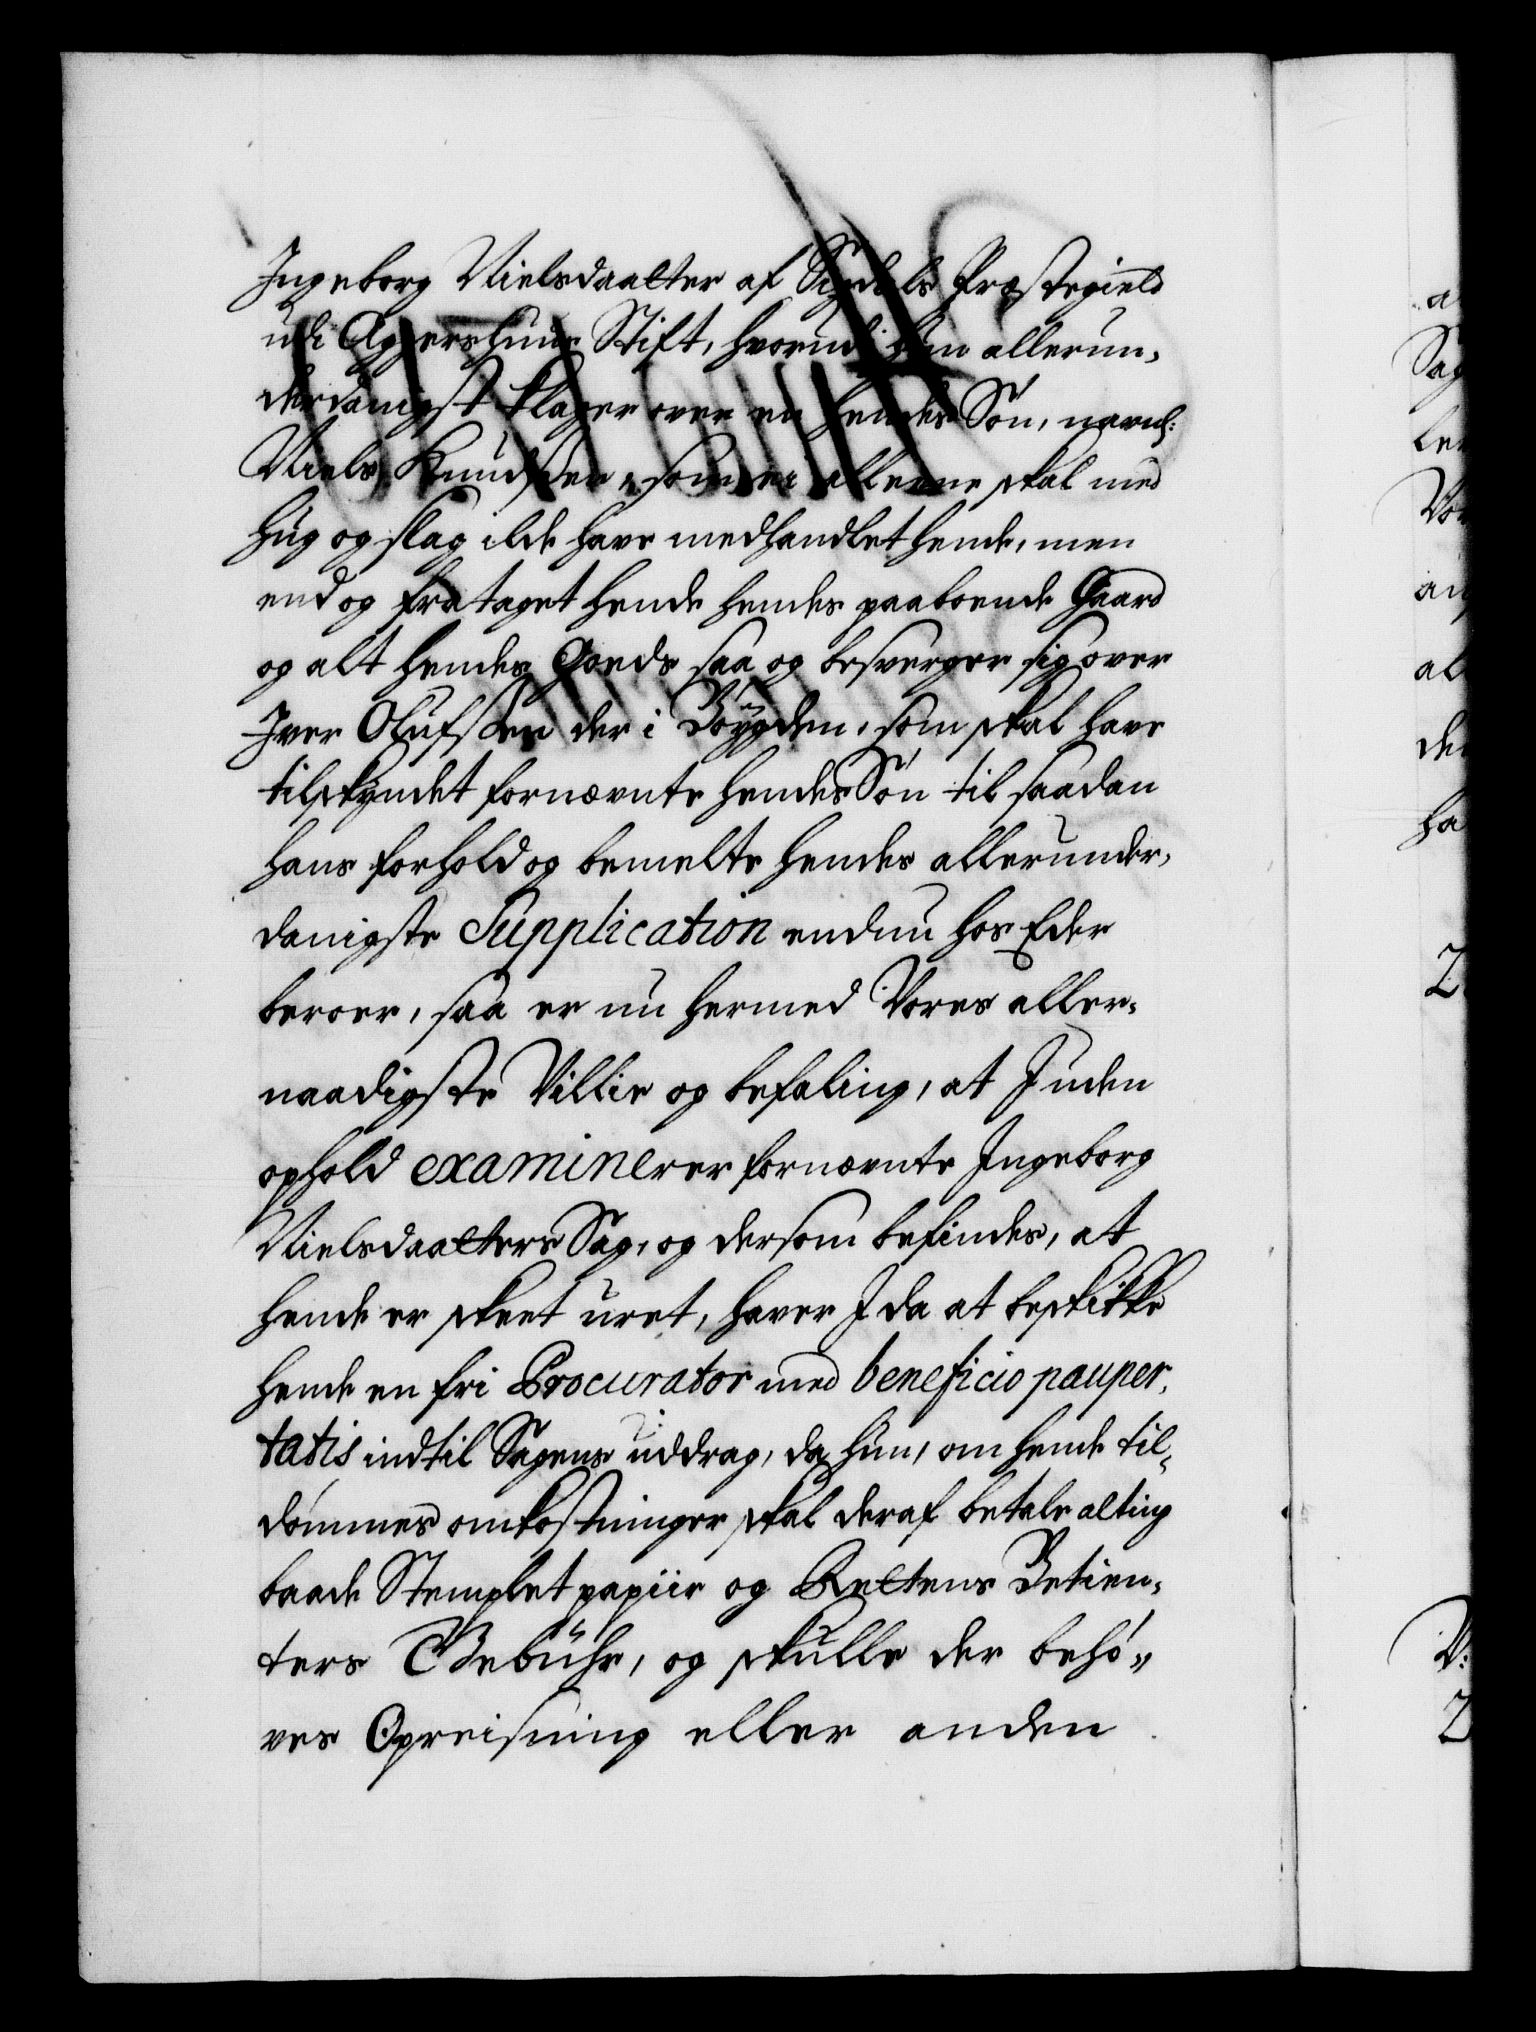 Ingeborg Nielsdaatter af Sigdals Præstegield
udi Aggershuus Stift, hvorudi hun allerun-
derdanigst klager over en hendes Sön, navnl:
Niels Knudsen, som ei alleene skal med
hug og slag ilde have medhandlet hende, men
end og frataget hende hendes paaboende Gaard
og alt hendes Goeds saa og besverger sig over
Iver Olufsen der i Böygden, som skal have
tilskyndet fornævnte hendes Sön til saadan
hans forhold og bemelte hendes allerunder-
danigste Supplication endnu hos Eder
beroer, saa er nu hermed Vores aller-
naadigste Villie og befaling, at I uden
ophold examinerer fornævnte Ingeborg
Nielsdaatters Sag, og dersom befindes, at
hende er skeet uret, haver I da at beskikke
hende en fri Procurator med beneficio pauper-
tatis indtil Sagens uddrag, da hun, om hende til-
dömmes omkostninger skal deraf betale alting
baade Stemplet papiir og Rettens Betien-
ters Gebühr, og skulle der behö-
ves Opreisning eller anden